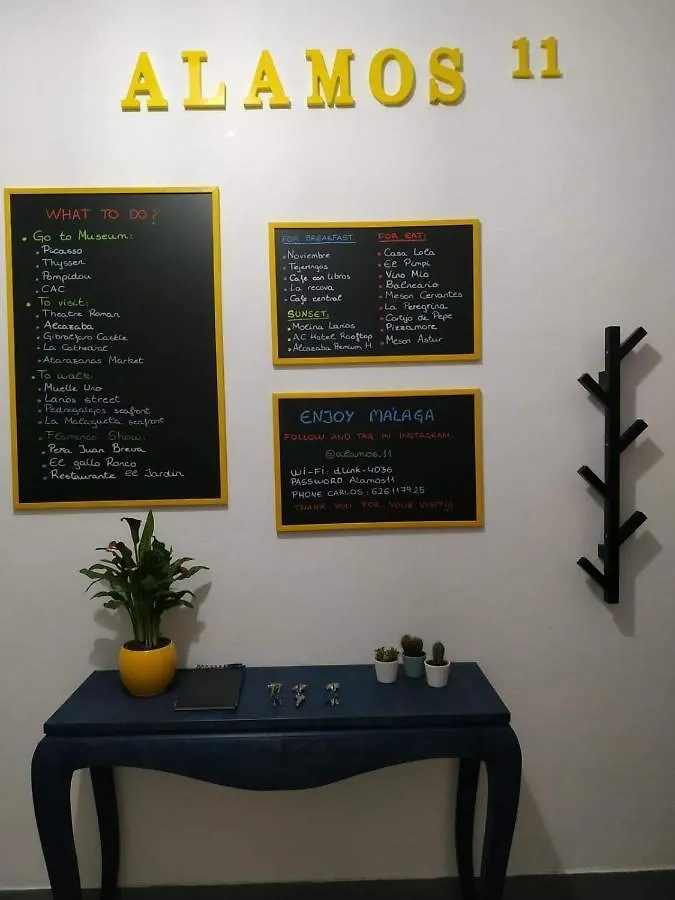 ALAMOS 11
WHAT TO DO?
• Go to Museum:
• Picasso
• Thyssen
• Pompidou
• CAC
• To visit:
• Theatre Roman
• Alcazaba
• Gibralfaro Castle
• La Cathedral
• Atarazanas Market
• To walk:
• Muelle Uno
• Larios street
• Pedregalejos seafront
• La Malagueta seafront
• Flamenco Show:
• Peña Juan Breva
• El gallo Ronco
• Restaurante El Jardin
FOR BREAKFAST:
• Noviembre
• Tejeringos
• Cafe con libros
• La recova
• Cafe central
SUNSET:
• Molina Larios
• AC Hotel Rooftop
• Alcazaba Premium H.
FOR EAT:
• Casa Lola
• El Pimpi
• Vino Mio
• Balneario
• Meson Cervantes
• La Peregrina
• Cortijo de Pepe
• Pizzamore
• Meson Astur
ENJOY MALAGA
FOLLOW AND TAG IN INSTAGRAM.
@alamos.11
Wi-Fi: dlink-4036
PASSWORD Alamos11
PHONE CARLOS: 626117925
THANK YOU FOR YOUR VISIT!!!